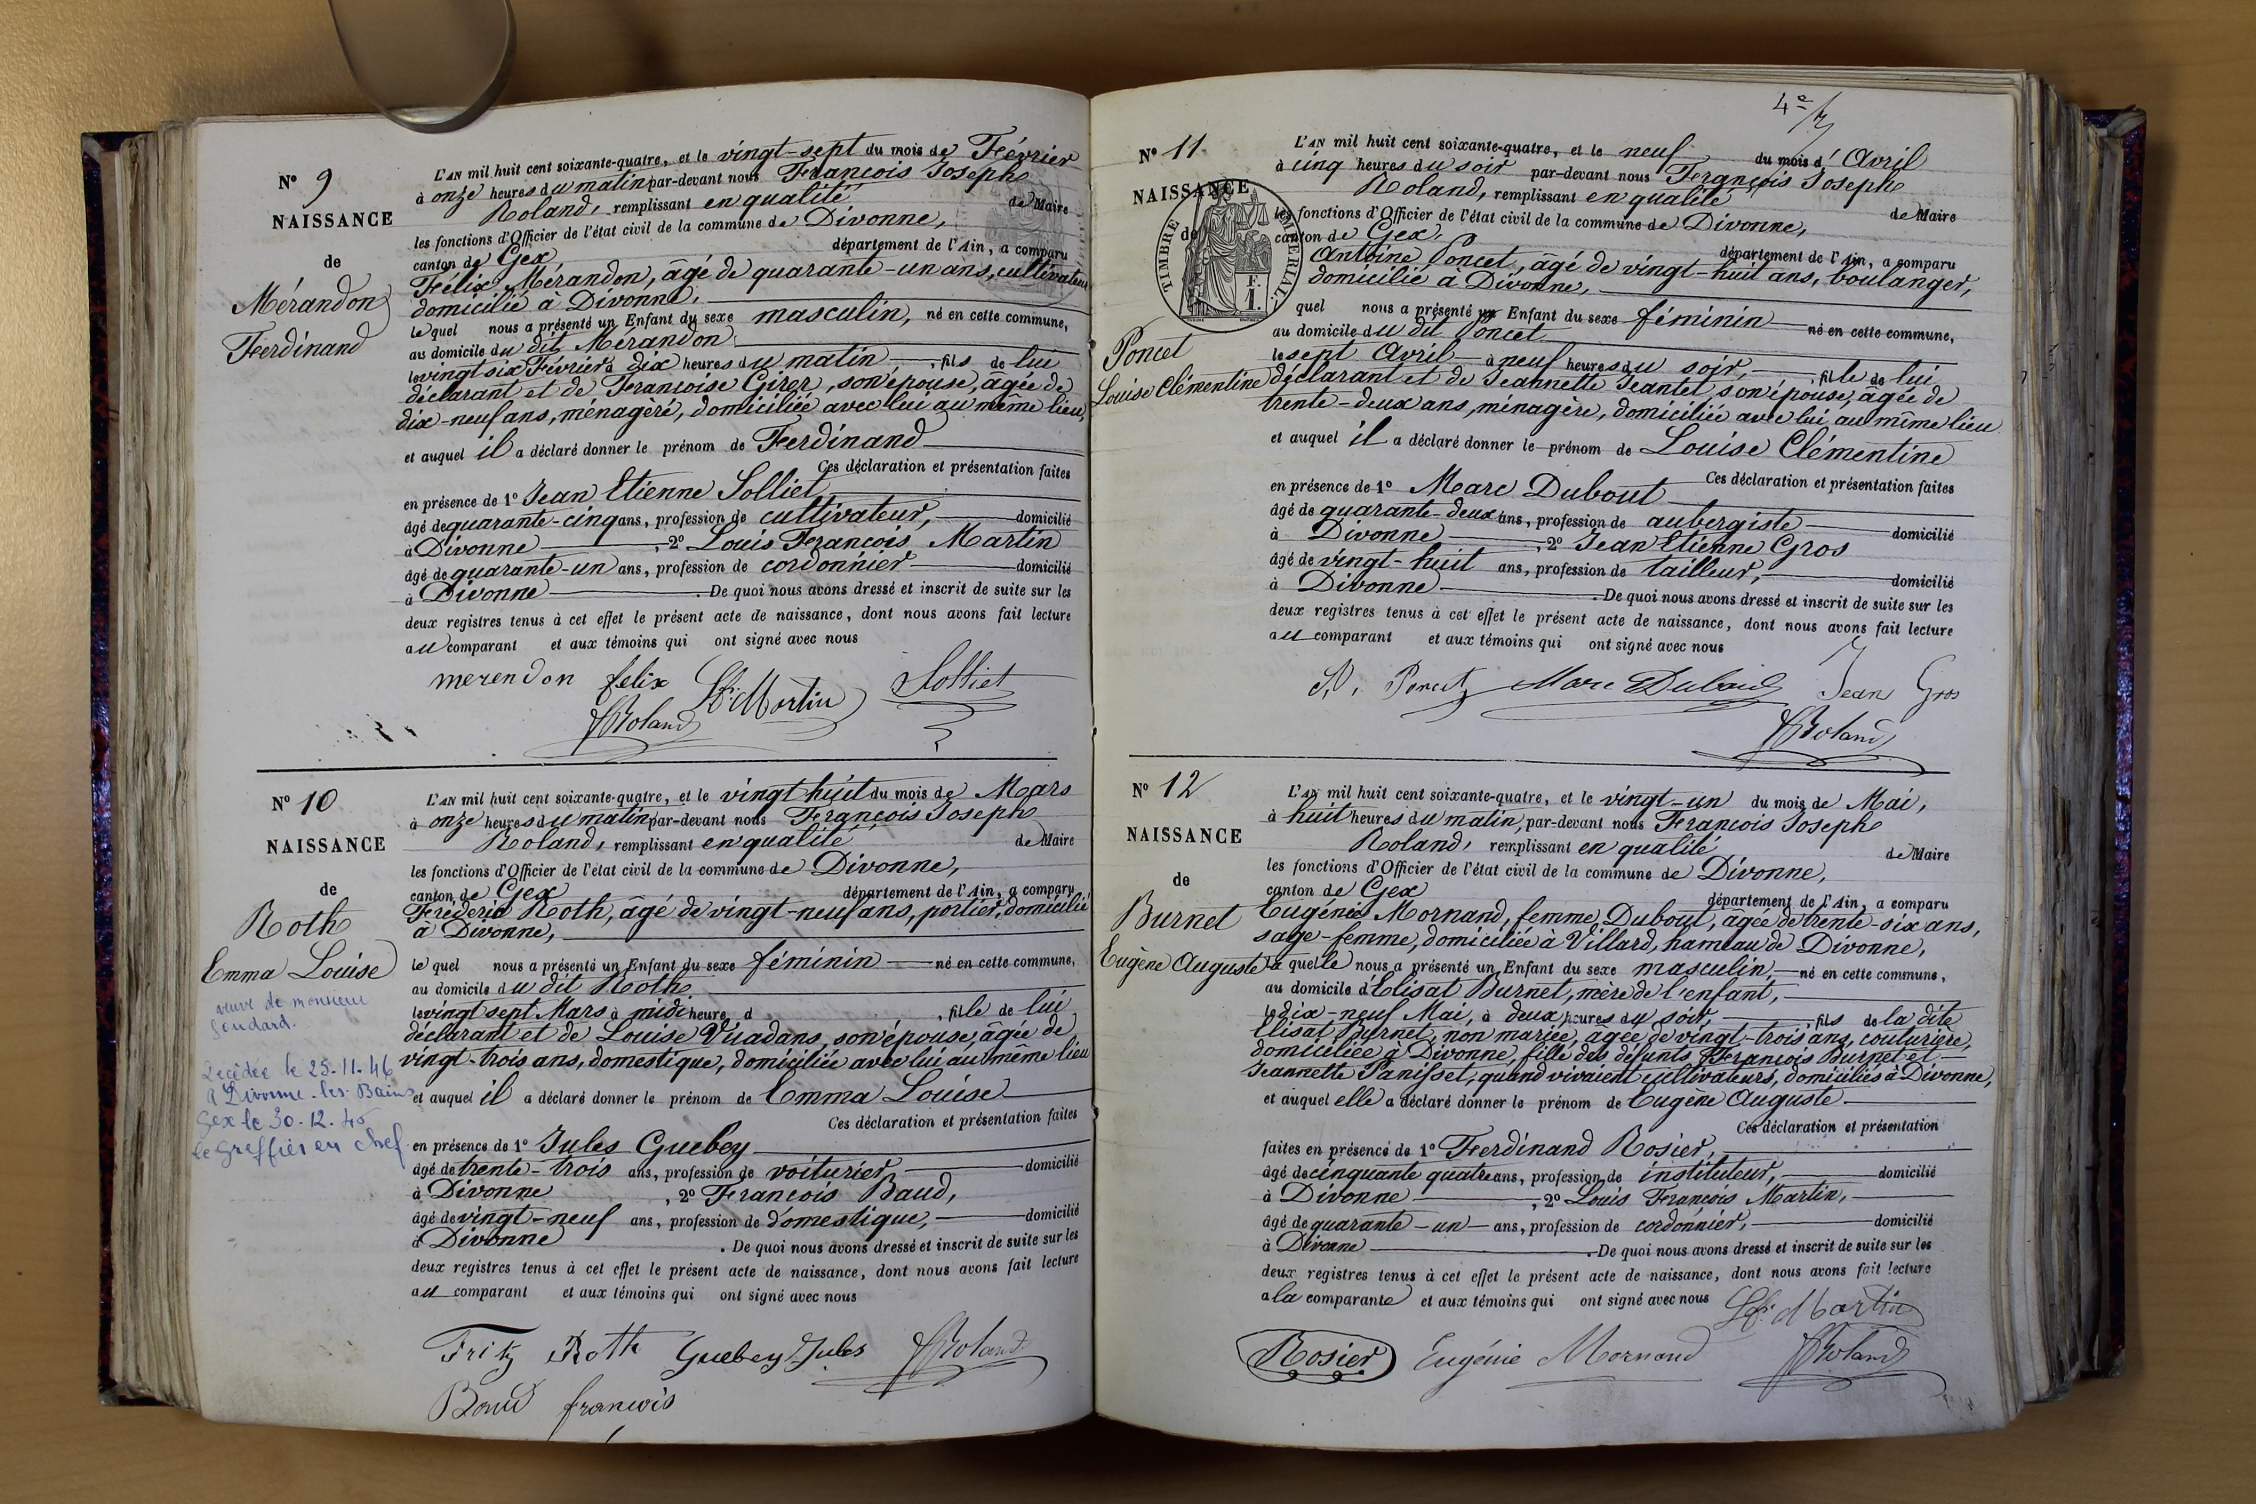 Nº 9
NAISSANCE
de
Mérandon
Ferdinand
L'AN mil huit cent soixante-quatre, et le vingt-sept du mois de Février
à onze heures du matin par-devant nous François Joseph
Roland, remplissant en qualité de Maire
les fonctions d'Officier de l'état civil de la commune de Divonne,
canton de Gex, département de l'Ain, a comparu
Félix Mérandon, âgé de quarante-un ans, cultivateur
domicilié à Divonne,
lequel nous a présenté un Enfant du sexe masculin, né en cette commune,
au domicile du dit Mérandon
le vingt six Février à dix heures du matin, fils de lui
déclarant et de Françoise Girer, son épouse, âgée de
dix-neuf ans, ménagère, domiciliée avec lui au même lieu,
et auquel il a déclaré donner le prénom de Ferdinand
Ces déclaration et présentation faites
en présence de 1º Jean Etienne Solliet
âgé de quarante-cinq ans, profession de cultivateur, domicilié
à Divonne, 2º Louis François Martin
âgé de quarante-un ans, profession de cordonnier domicilié
à Divonne. De quoi nous avons dressé et inscrit de suite sur les
deux registres tenus à cet effet le présent acte de naissance, dont nous avons fait lecture
au comparant et aux témoins qui ont signé avec nous
merendon felix Ls. fs. Martin Solliet
JRoland
Nº 10
NAISSANCE
de
Roth
Emma Louise
veuve de monsieur
Goudard.
Décédée le 25-11-46
à Divonne-les-Bains
Gex le 30-12-46
le Greffier en chef
L'AN mil huit cent soixante-quatre, et le vingt huit du mois de Mars
à onze heures du matin par-devant nous François Joseph
Roland, remplissant en qualité de Maire
les fonctions d'Officier de l'état civil de la commune de Divonne,
canton de Gex département de l'Ain, a comparu
Frédéric Roth, âgé de vingt-neuf ans, portier, domicilié
à Divonne,
lequel nous a présenté un Enfant du sexe féminin né en cette commune,
au domicile du dit Roth
le vingt sept Mars à midi heure d , fille de lui
déclarant et de Louise Vuadans, son épouse, âgée de
vingt-trois ans, domestique, domiciliée avec lui au même lieu
et auquel il a déclaré donner le prénom de Emma Louise
Ces déclaration et présentation faites
en présence de 1º Jules Guebey
âgé de trente-trois ans, profession de voiturier, domicilié
à Divonne, 2º François Baud,
âgé de vingt-neuf ans, profession de domestique, domicilié
à Divonne. De quoi nous avons dressé et inscrit de suite sur les
deux registres tenus à cet effet le présent acte de naissance, dont nous avons fait lecture
au comparant et aux témoins qui ont signé avec nous
Fritz Roth Guebey Jules JRoland
Baud françois
4e
Nº 11
NAISSANCE
de
TIMBRE IMPERIAL
F. 1.
Poncet
Louise Clémentine
L'AN mil huit cent soixante-quatre, et le neuf du mois d'Avril
à cinq heures du soir par-devant nous François Joseph
Roland, remplissant en qualité de Maire
les fonctions d'Officier de l'état civil de la commune de Divonne,
canton de Gex, département de l'Ain, a comparu
Antoine Poncet, âgé de vingt-huit ans, boulanger,
domicilié à Divonne,
quel nous a présenté un Enfant du sexe féminin né en cette commune,
au domicile du dit Poncet
le sept Avril à neuf heures du soir, fille de lui
déclarant et de Jeannette Jeantet, son épouse, âgée de
trente-deux ans, ménagère, domiciliée avec lui au même lieu
et auquel il a déclaré donner le prénom de Louise Clémentine
Ces déclaration et présentation faites
en présence de 1º Marc Dubout
âgé de quarante-deux ans, profession de aubergiste domicilié
à Divonne, 2º Jean Etienne Gros
âgé de vingt-huit ans, profession de tailleur, domicilié
à Divonne. De quoi nous avons dressé et inscrit de suite sur les
deux registres tenus à cet effet le présent acte de naissance, dont nous avons fait lecture
au comparant et aux témoins qui ont signé avec nous
Poncet Marc Dubout Jean Gros
JRoland
Nº 12
NAISSANCE
de
Burnet
Eugène Auguste
L'AN mil huit cent soixante-quatre, et le vingt-un du mois de Mai,
à huit heures du matin, par-devant nous François Joseph
Roland, remplissant en qualité de Maire
les fonctions d'Officier de l'état civil de la commune de Divonne,
canton de Gex département de l'Ain, a comparu
Eugénie Mornand, femme Dubout, âgée de trente-six ans,
sage-femme, domiciliée à Villard, hameau de Divonne,
laquelle nous a présenté un Enfant du sexe masculin, né en cette commune,
au domicile d'Elisat Burnet, mère de l'enfant,
le dix-neuf Mai, à deux heures du soir, fils de la dite
Elisat Burnet, non mariée, âgée de vingt-trois ans, couturière,
domiciliée à Divonne, fille des défunts François Burnet et
Jeannette Panisset, quand vivaient cultivateurs, domiciliés à Divonne,
et auquel elle a déclaré donner le prénom de Eugène Auguste
Ces déclaration et présentation
faites en présence de 1º Ferdinand Rosier,
âgé de cinquante quatre ans, profession de instituteur, domicilié
à Divonne, 2º Louis François Martin,
âgé de quarante-un ans, profession de cordonnier, domicilié
à Divonne. De quoi nous avons dressé et inscrit de suite sur les
deux registres tenus à cet effet le présent acte de naissance, dont nous avons fait lecture
a la comparante et aux témoins qui ont signé avec nous Ls. fs. Martin
Rosier Eugénie Mornand JRoland